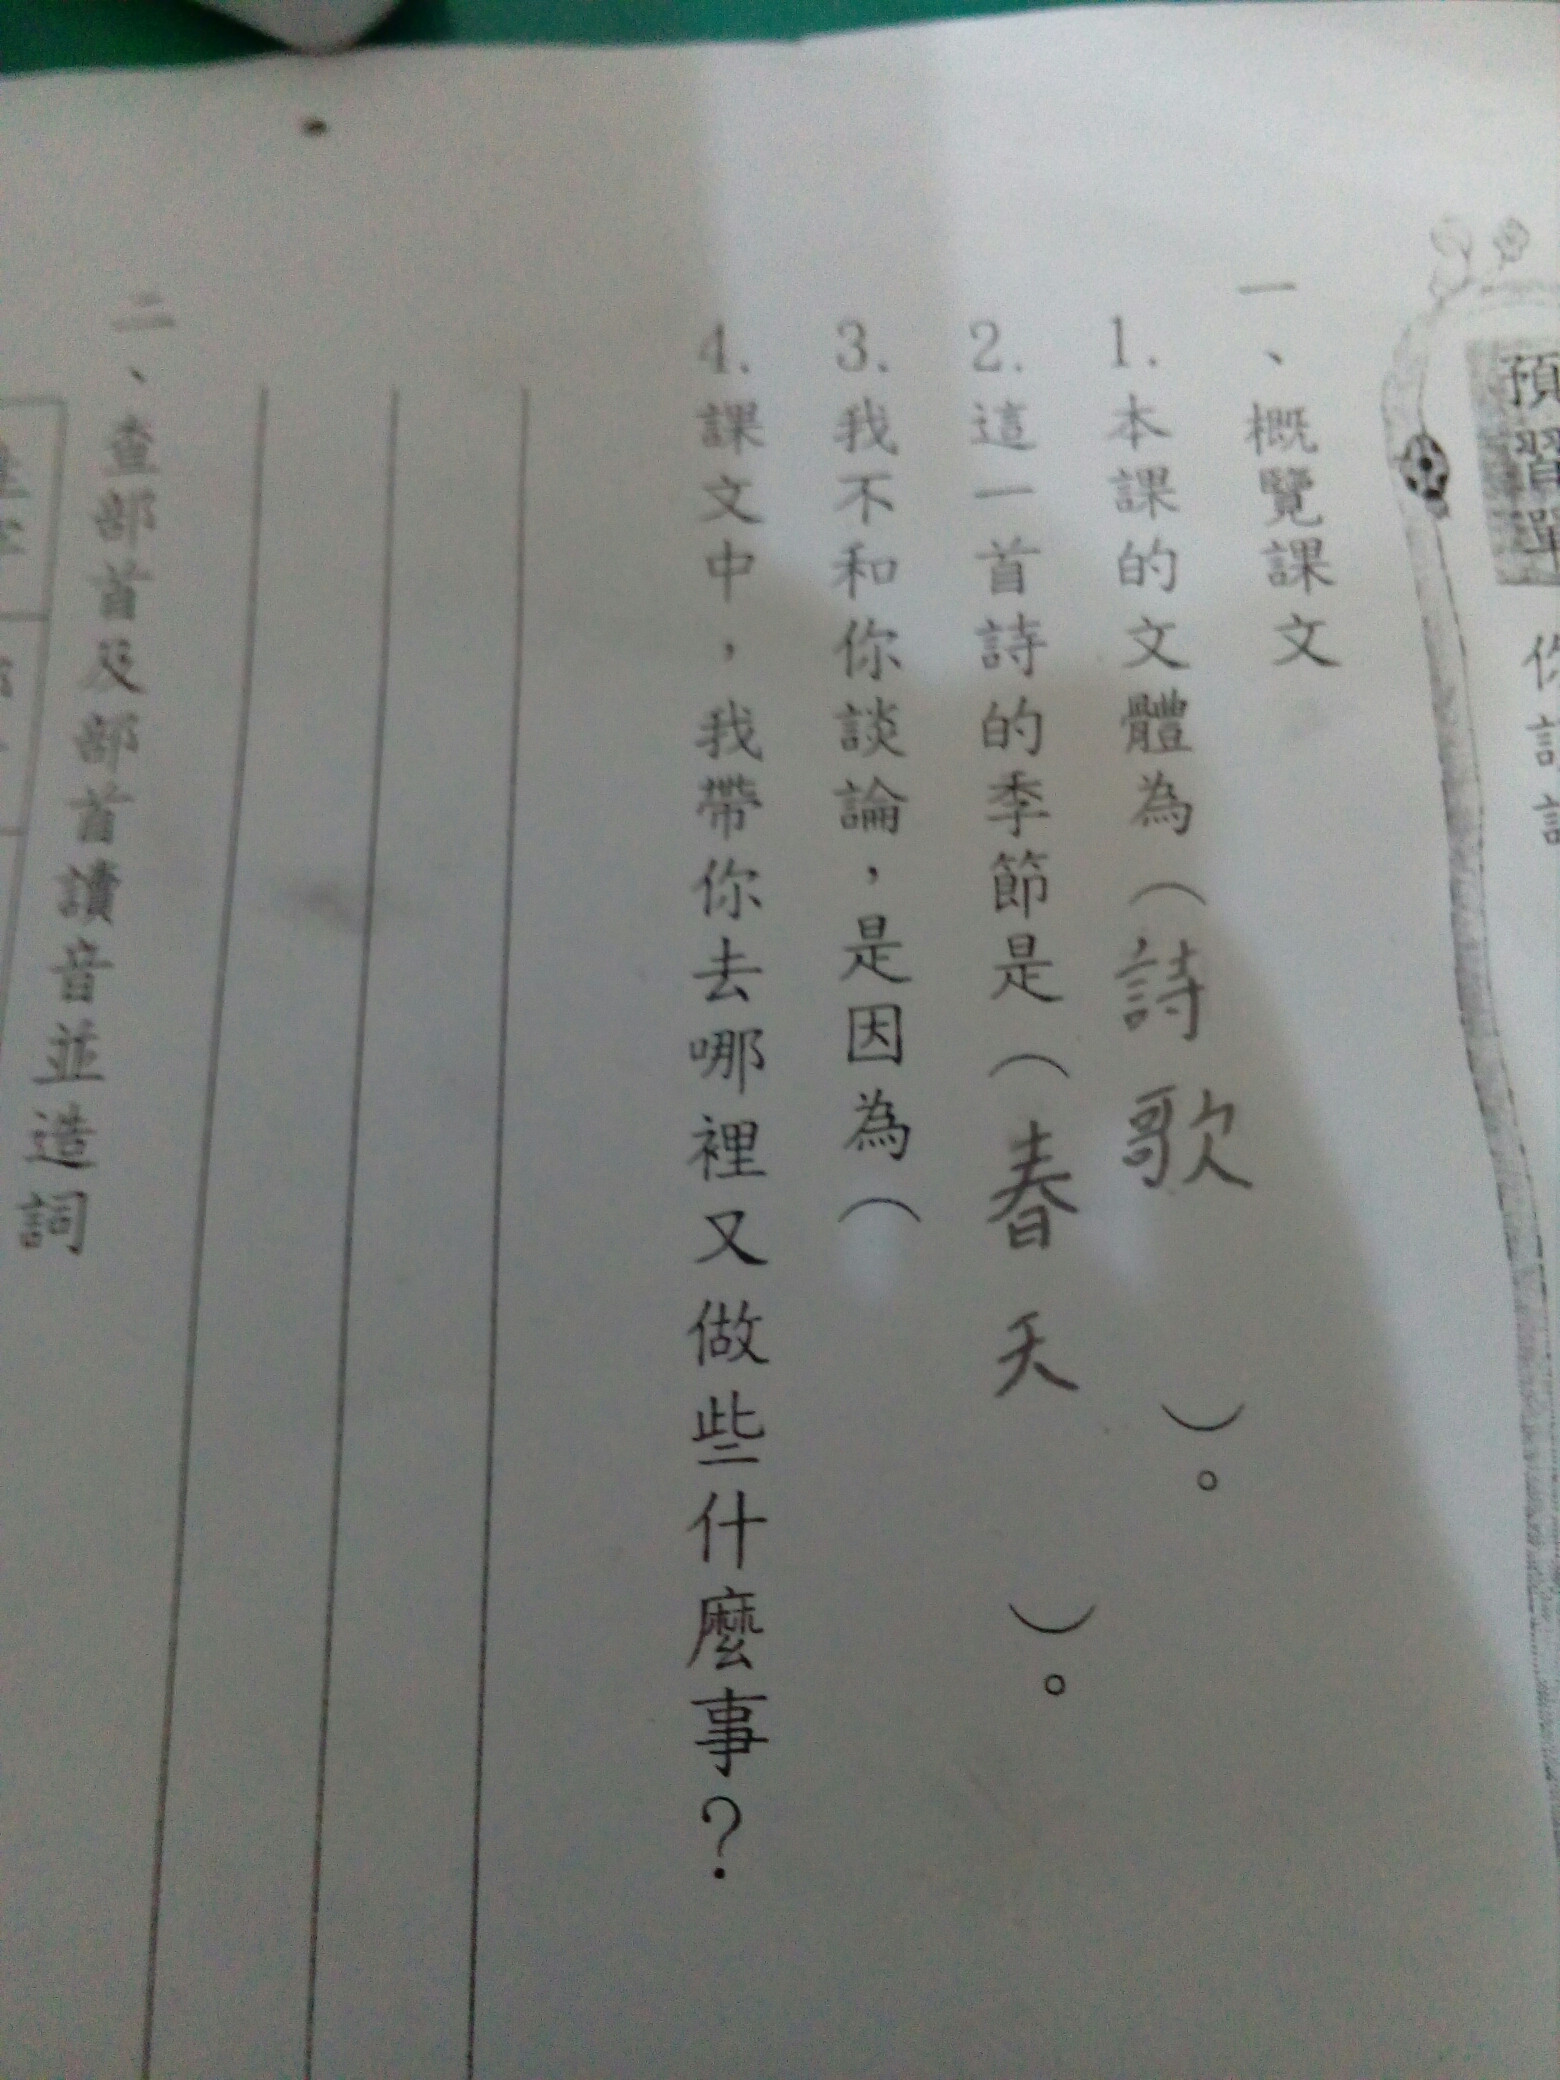 預習單
一、概覽課文
1.本課的文體為（詩歌）。
2.這一首詩的季節是（春天）。
3.我不和你談論，是因為（
4.課文中，我帶你去哪裡又做些什麼事？
二、查部首及部首讀音並造詞